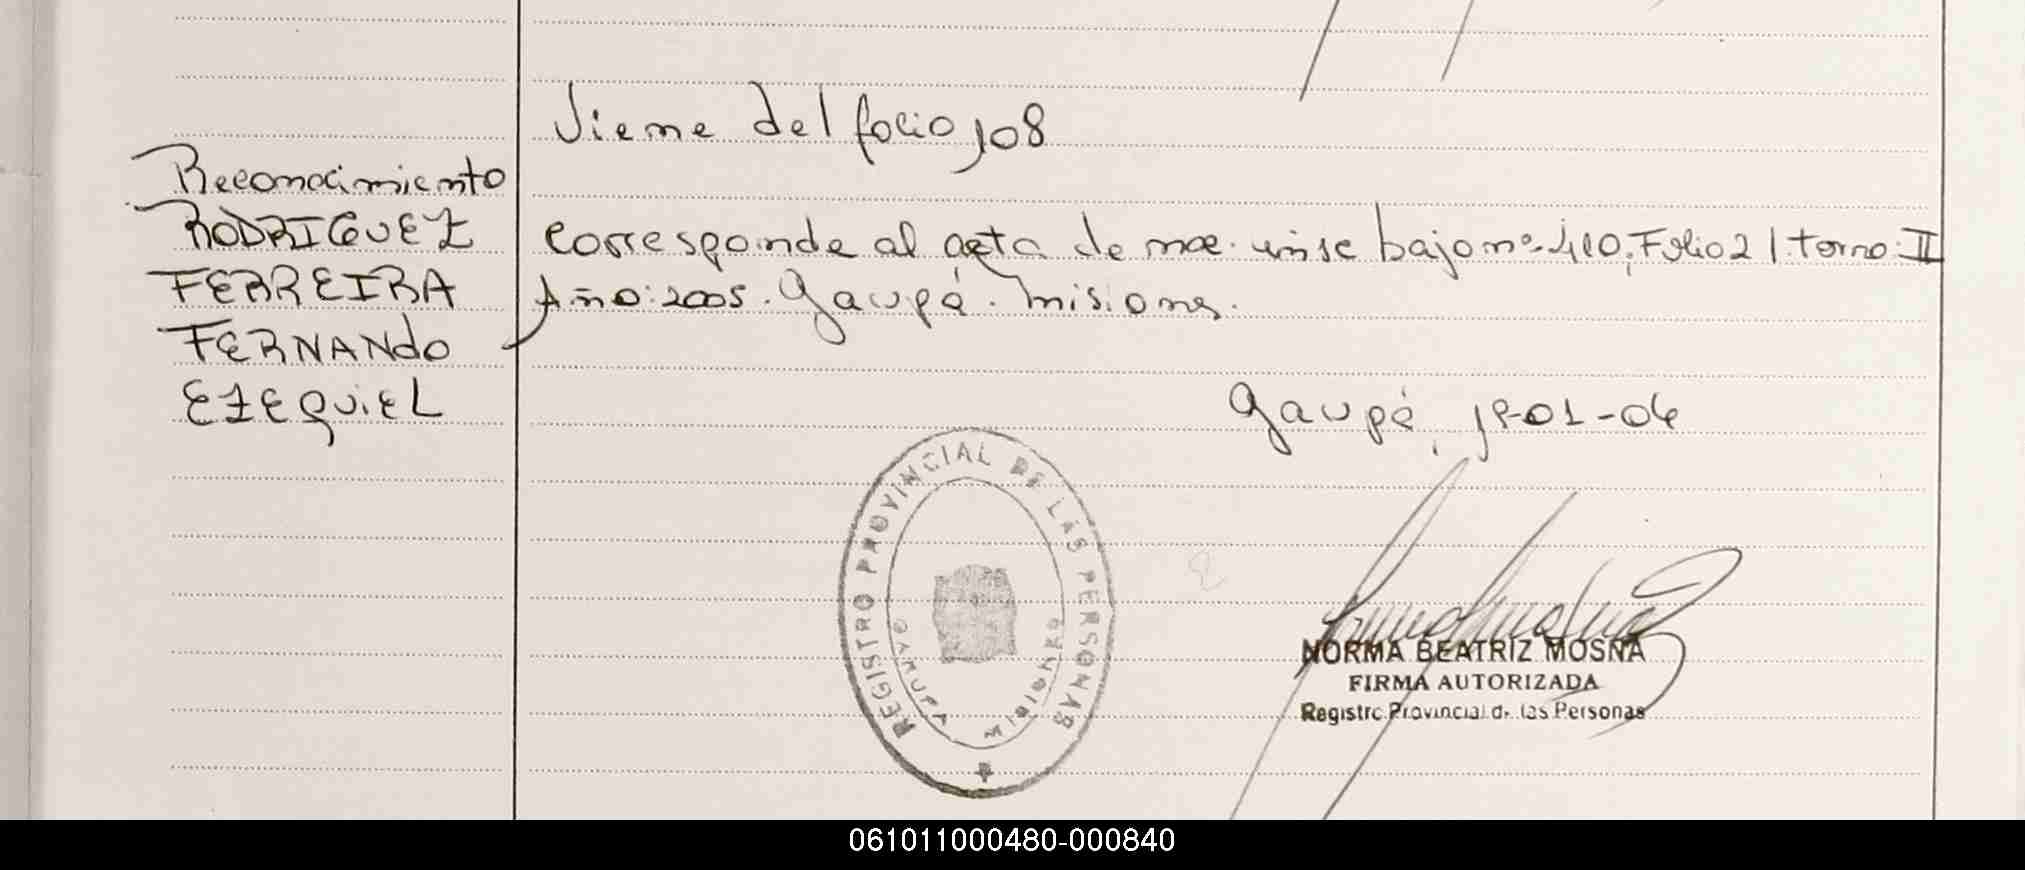 Viene del folio 108
Reconocimiento
RODRIGUEZ
FERREIRA
FERNANdo
EZEQUIEL
Corresponde al acta de nac. insc bajo nº 410, Folio 21 tomo: II
Año: 2005. Garupá. Misiones.
Garupá, 19-01-06
REGISTRO PROVINCIAL DE LAS PERSONAS
GARUPA MISIONES
NORMA BEATRIZ MOSNA
FIRMA AUTORIZADA
Registro Provincial de las Personas
061011000480-000840